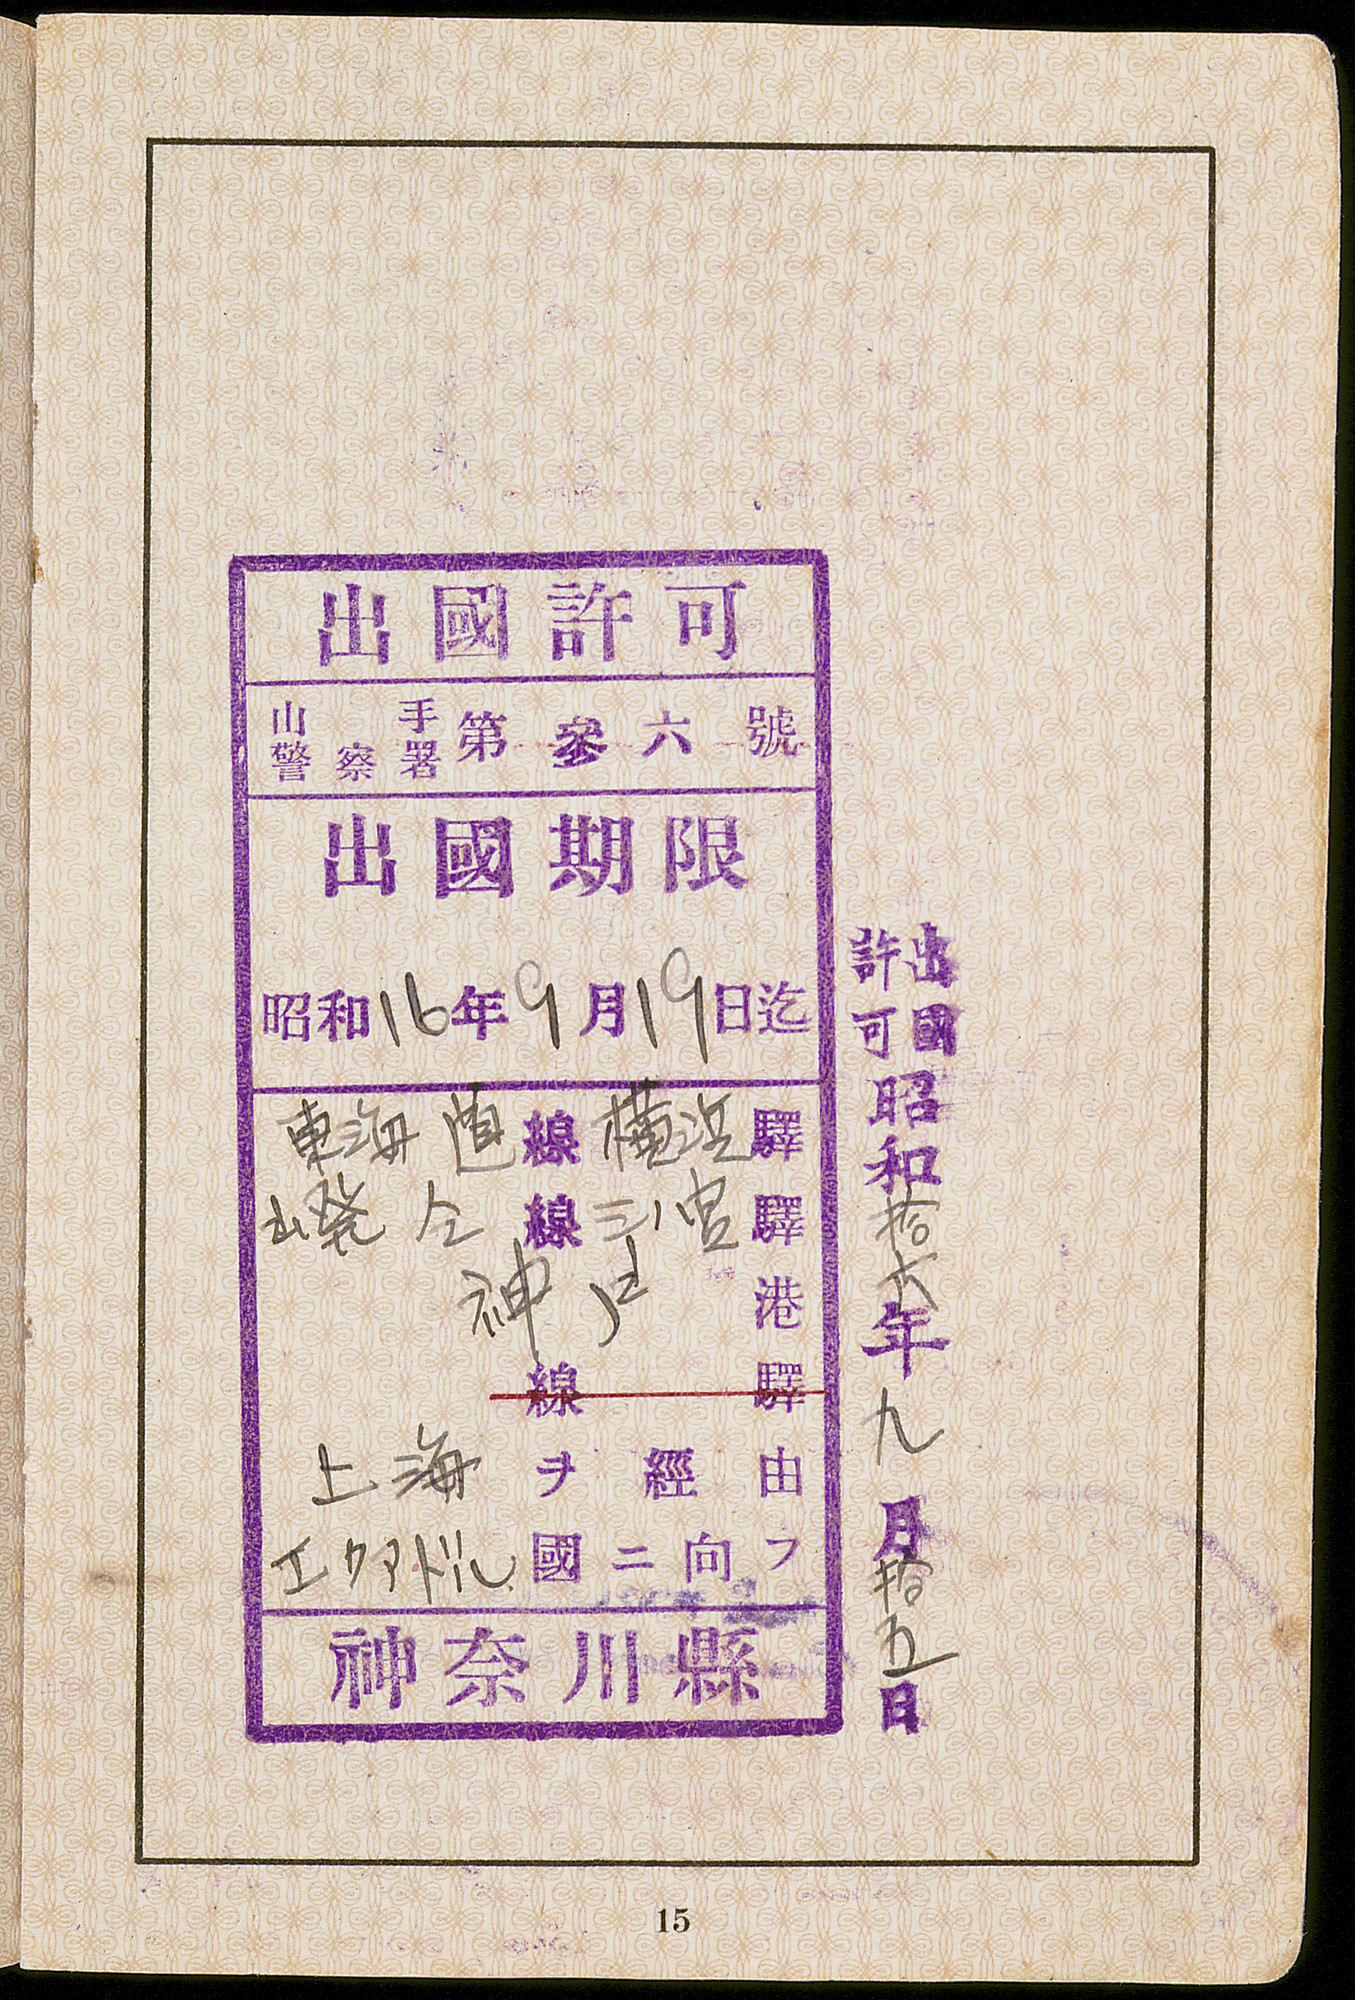 出國許可
山手警察署 第参六號
出國期限
昭和16年9月19日迄
東海道線横浜驛
出発 仝線三ノ宮驛
神戸港
線 驛
上海ヲ經由
エクアドル國ニ向フ
神奈川縣
出國許可昭和拾六年九月拾五日
15